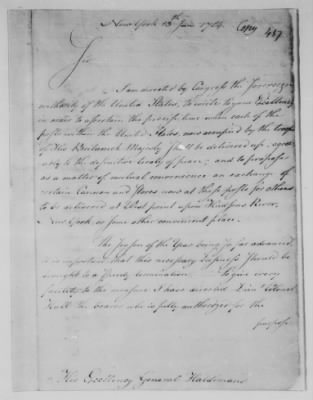 New York 13th June 1784. Copy
487
Sir
I am directed by Congress the Sovereign
authority of the United States, to write to your Excellency
in order to ascertain the precise time when each of the
posts within the United States, now occupied by the troops
of His Britannick Majesty shall be delivered up, agree-
ably to the definitive treaty of peace; and to propose
as a matter of mutual convenience an exchange of
certain Cannon and Stores now at those posts for others
to be delivered at West point upon Hudsons River,
New York or some other convenient place.
The season of the Year being so far advanced,
it is important that this necessary business should be
brought to a speedy termination. To give every
facility to the measure I have directed Lieut Colonel
Hull the bearer who is fully authorized for the
purpose
His Excellency General Haldimand